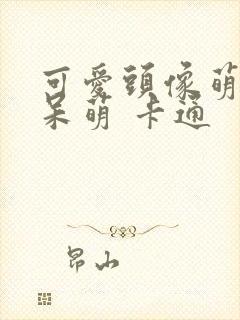 可愛頭像萌
呆萌 卡通
昂山